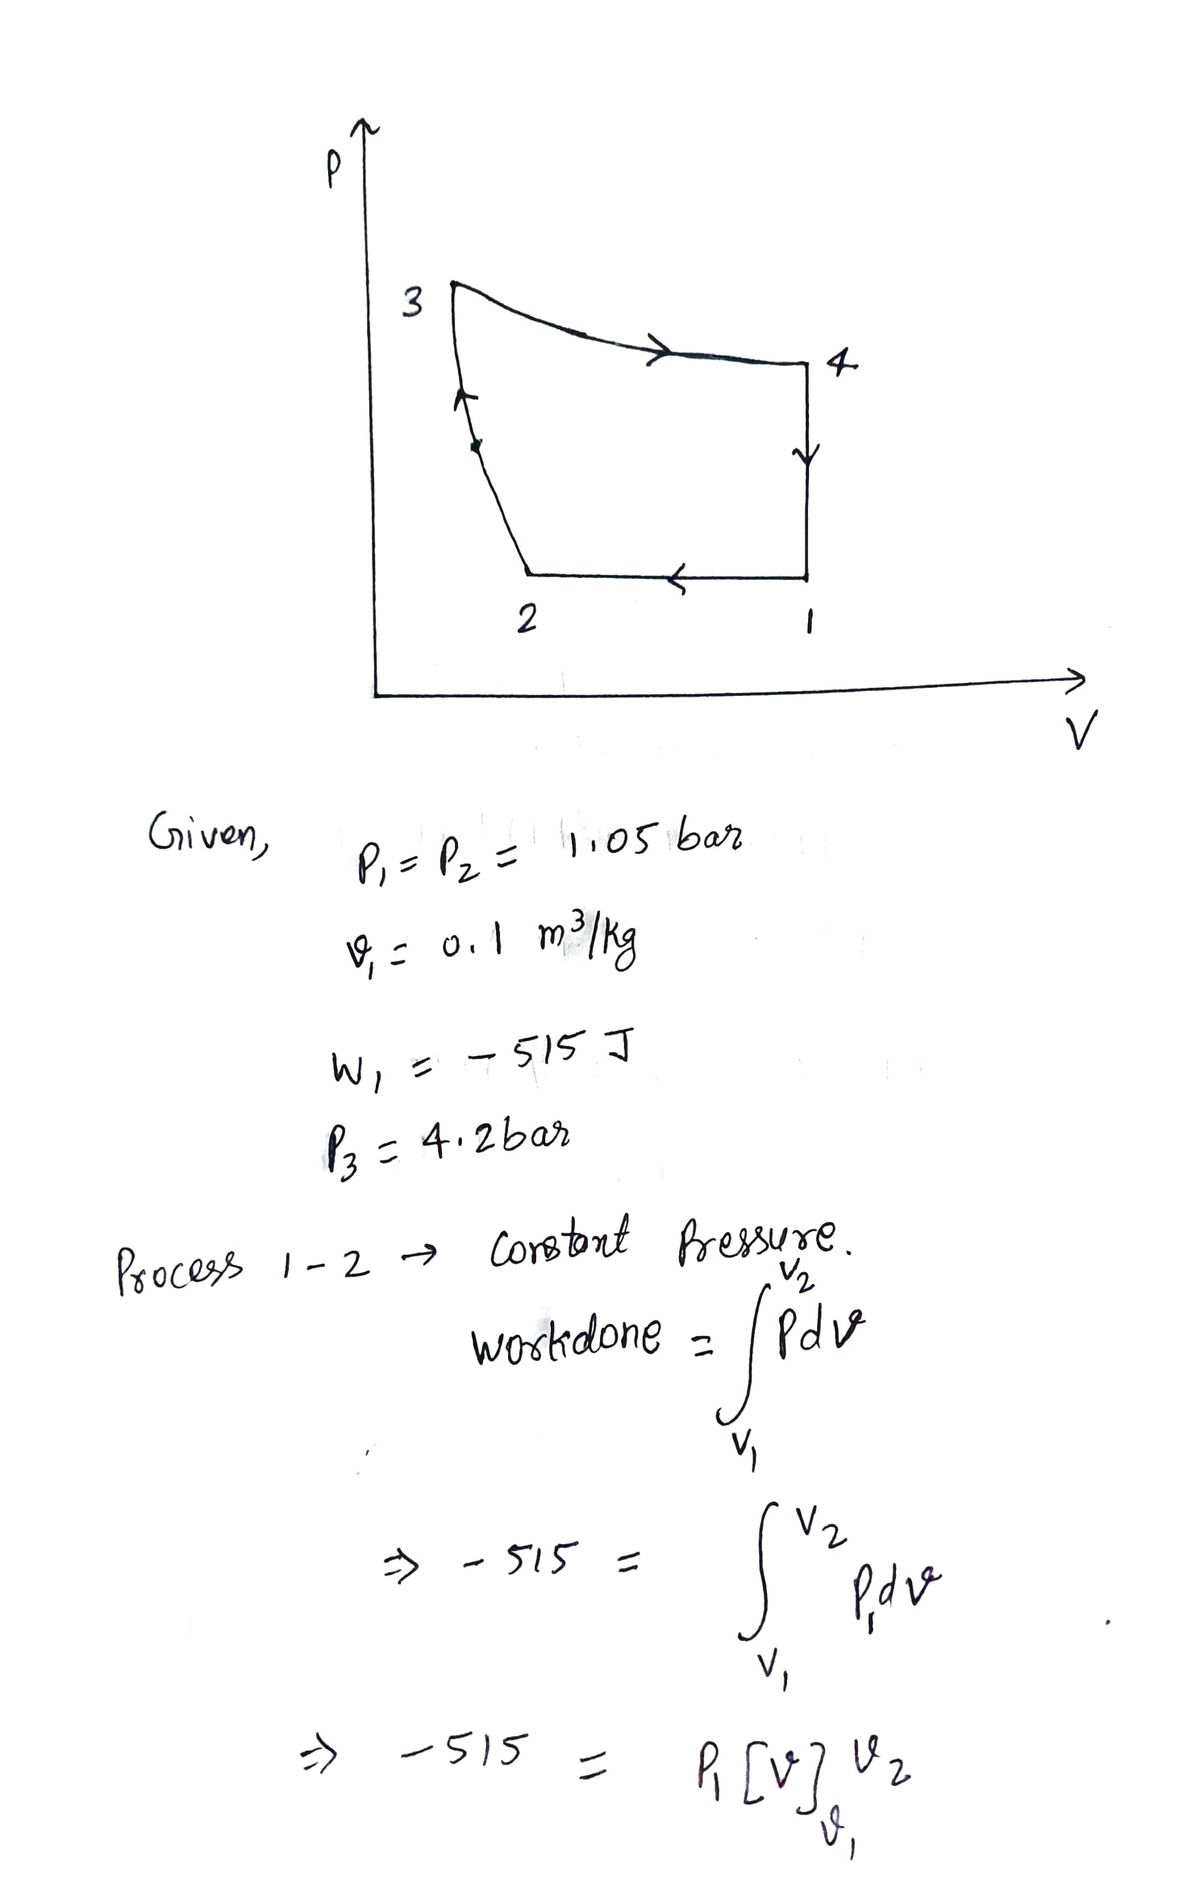 P
3
4
2
1
V
Given,
P₁ = P₂ = 1.05 bar
v₁ = 0.1 m³/kg
W₁ = - 515 J
P₃ = 4.2 bar
Process 1-2 → Constant Pressure.
Workdone = ∫_{V₁}^{V₂} Pdv
⇒ - 515 = ∫_{V₁}^{V₂} P₁dv
⇒ - 515 = P₁ [v]_{v₁}^{v₂}